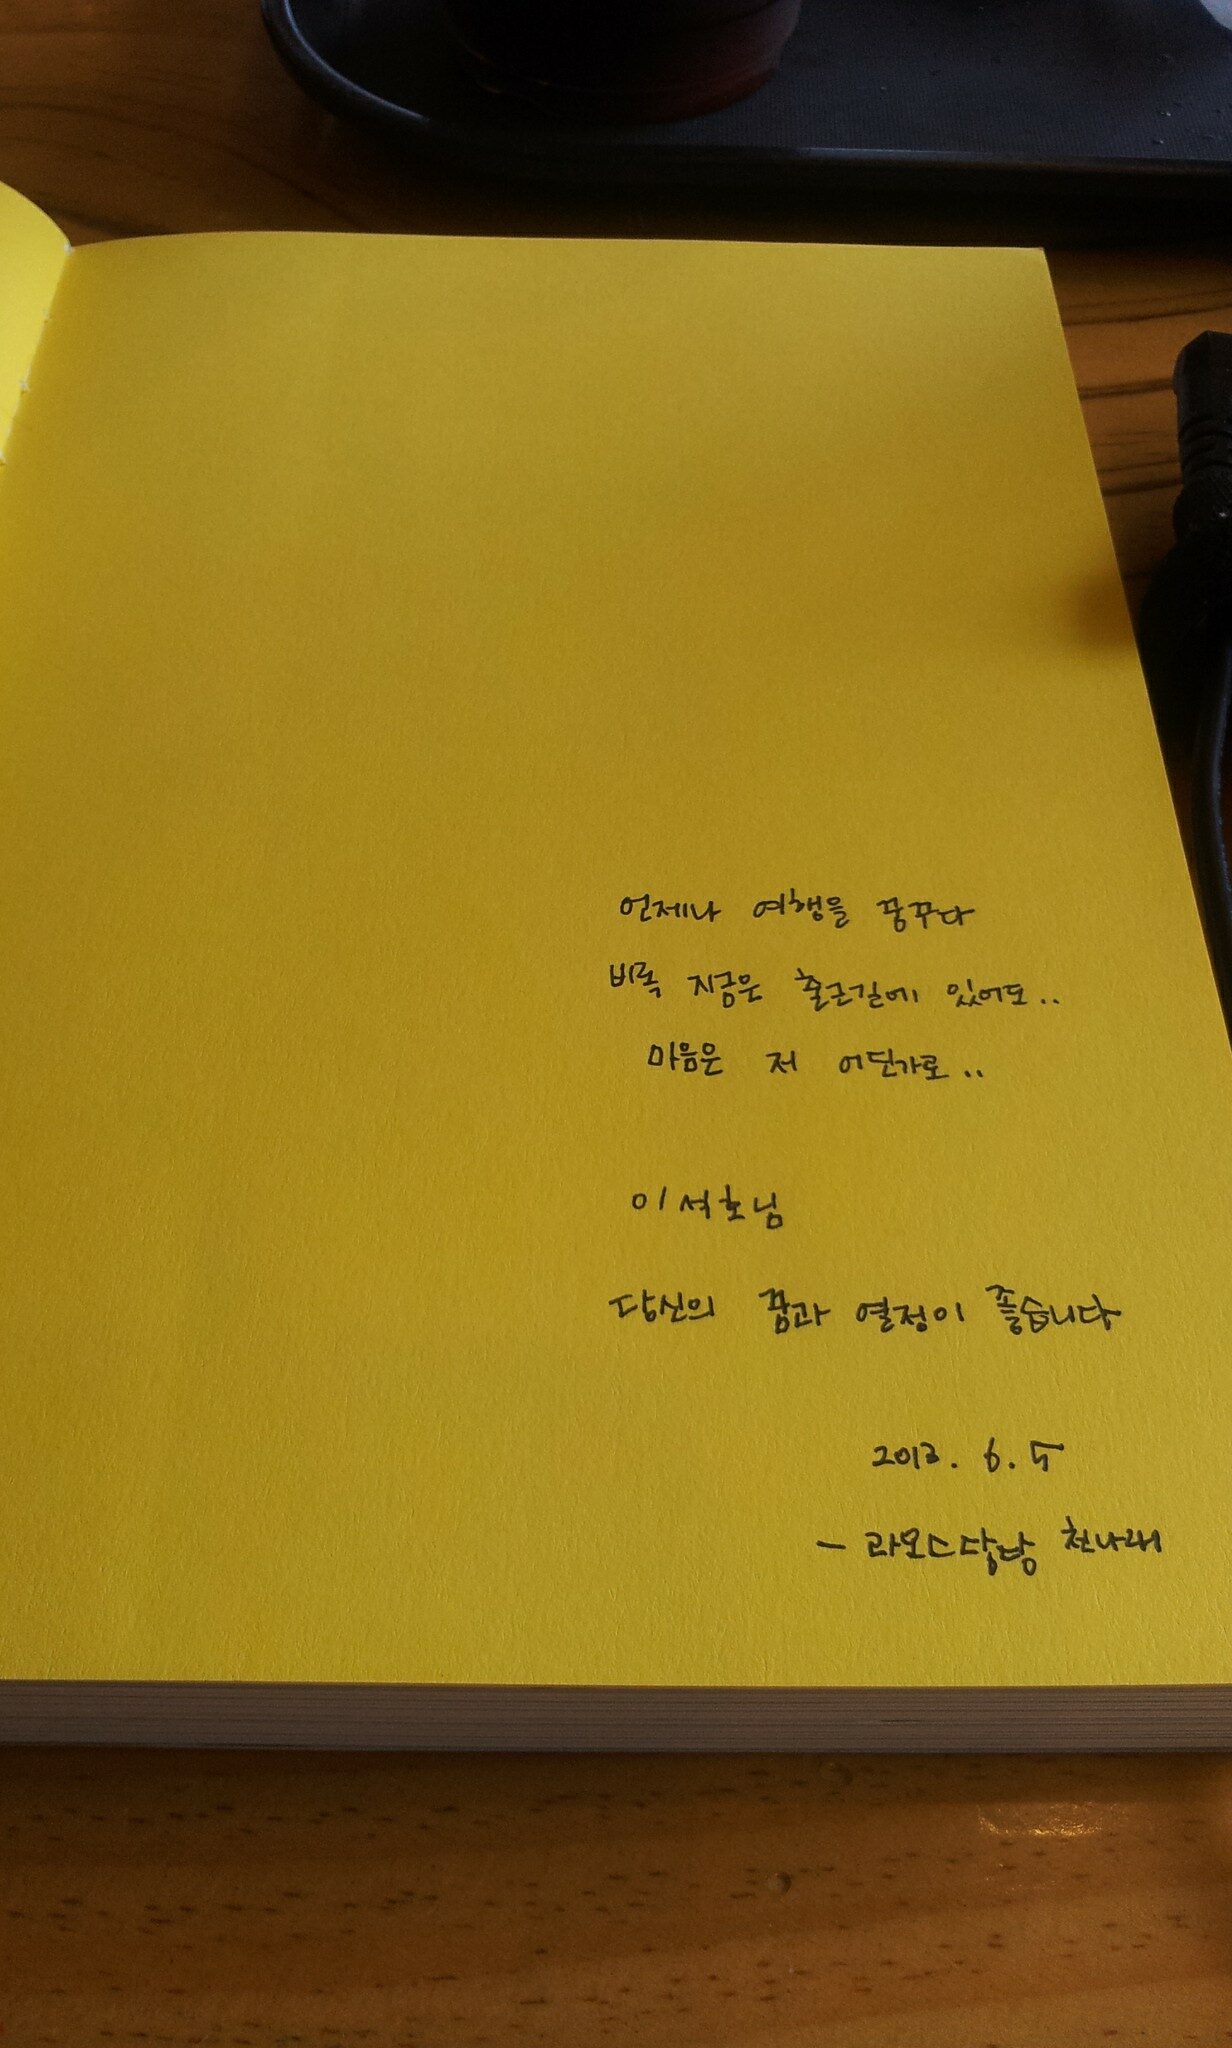 언제나 여행을 꿈꾸다
비록 지금은 출근길에 있어도..
마음은 저 어딘가로..
이석호님
당신의 꿈과 열정이 좋습니다
2013. 6. 5
- 라오스담당 천나래